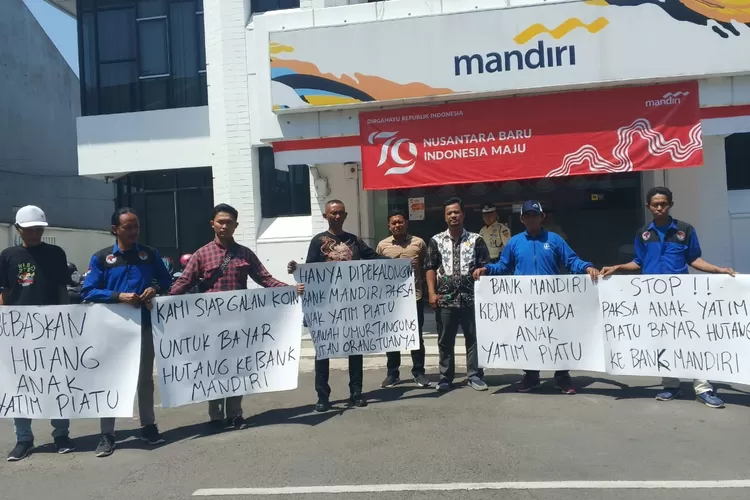 mandiri
DIRGAHAYU REPUBLIK INDONESIA
mandiri
79
NUSANTARA BARU
INDONESIA MAJU
BEBASKAN
HUTANG
ANAK
YATIM PIATU
KAMI SIAP GALAN KOIN
UNTUK BAYAR
HUTANG KE BANK
MANDIRI
HANYA DIPEKALONGAN
BANK MANDIRI PAKSA
ANAK YATIM PIATU
BAWAH UMUR TANGUNG
ORANGTUANYA
BANK MANDIRI
KEJAM KEPADA
ANAK
YATIM PIATU
STOP !!
PAKSA ANAK YATIM
PIATU BAYAR HUTANG
KE BANK MANDIRI